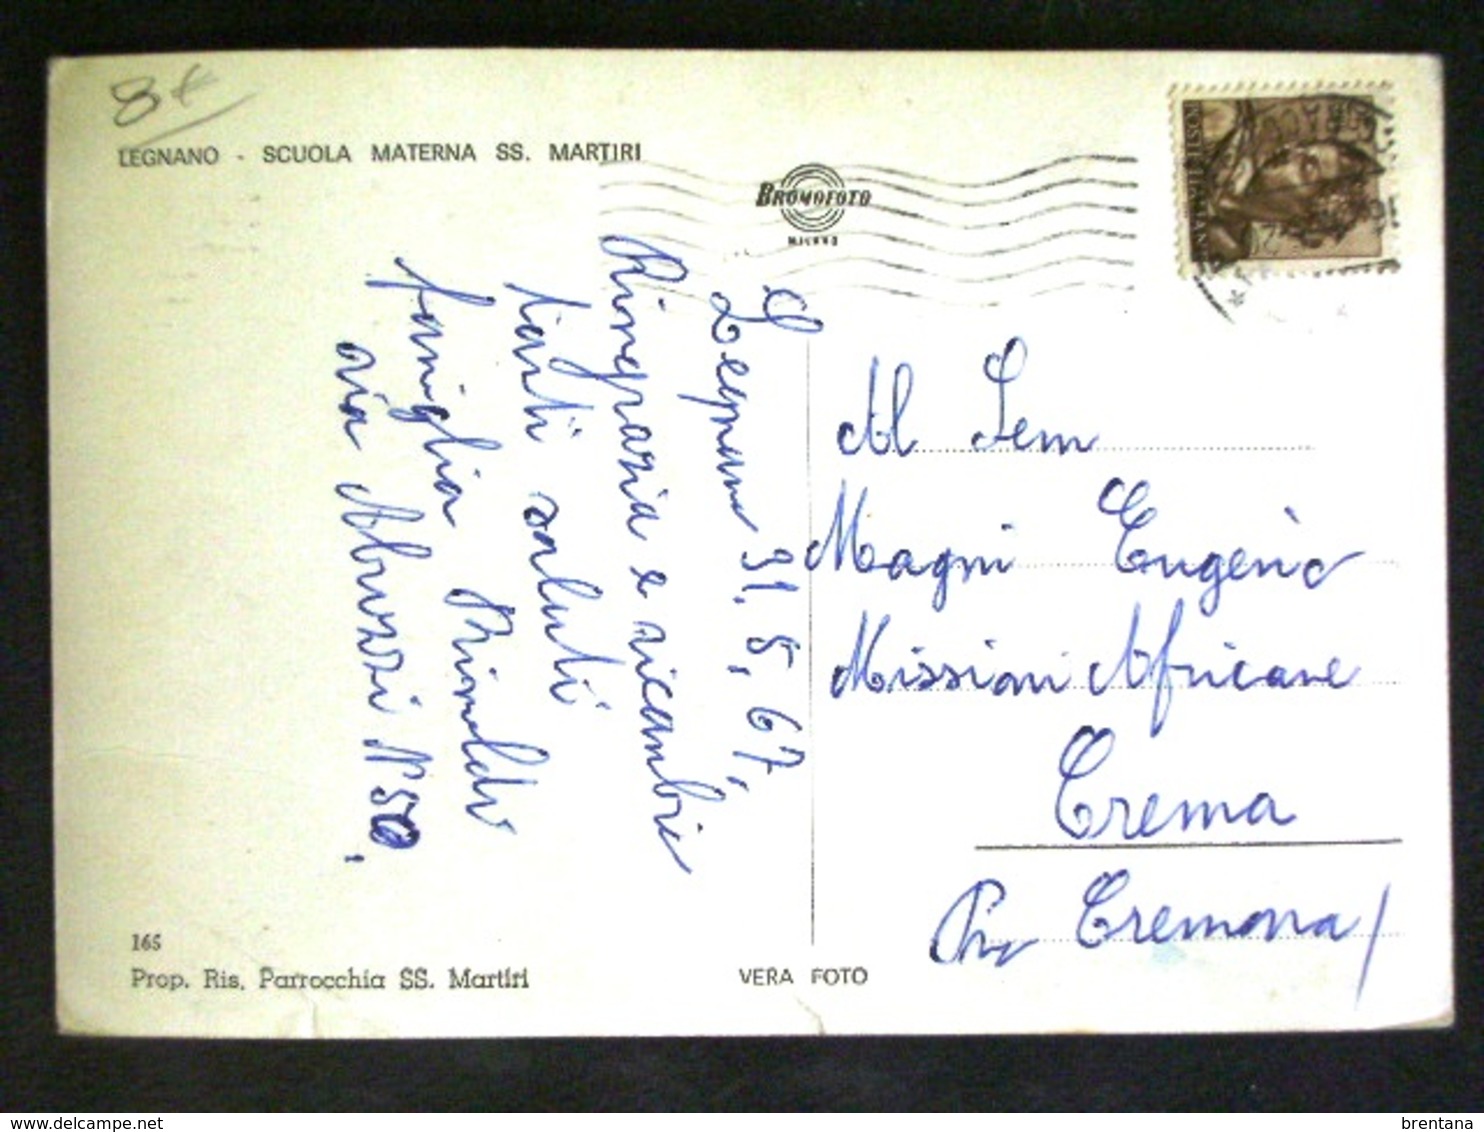 8
LEGNANO - SCUOLA MATERNA SS. MARTIRI
BROMOFOTO
MILANO
POSTE ITALIANE
Legnano 31.8,67,
Ringrazia e ricambia
tanti saluti
famiglia Rimoldi
via Abruzzi N 50.
Al Sem
Magni Eugenio
Missioni Africane
Crema
Pro Cremona/
165
Prop. Ris. Parrocchia SS. Martiri
VERA FOTO
brentana